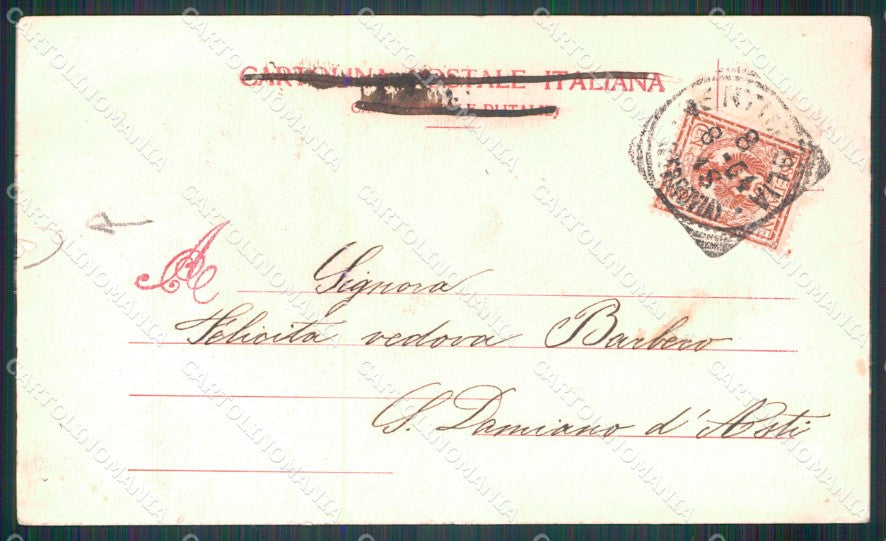 CARTOLINA POSTALE ITALIANA
A
Signora
Felicita vedova Barbero
S. Damiano d'Asti
CARTOLINOMANIA